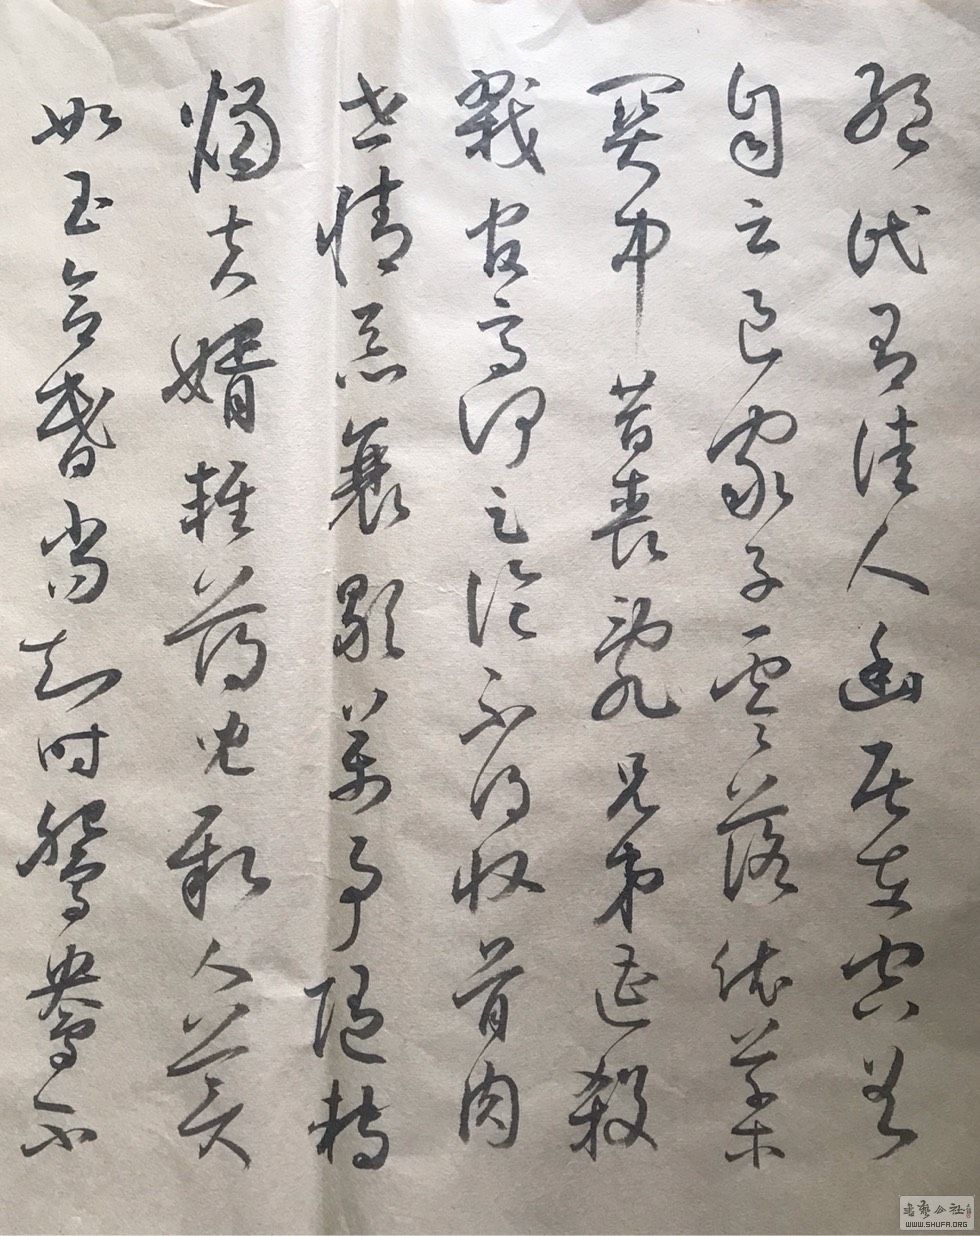 絕代有佳人幽居在空谷
自云良家子零落依草木
關中昔喪亂兄弟遭殺
戮官高何足論不得收骨肉
世情惡衰歇萬事隨轉
燭夫婿輕薄兒新人美
如玉合昏尚知時鴛鴦不
書藝公社
WWW.SHUFA.ORG